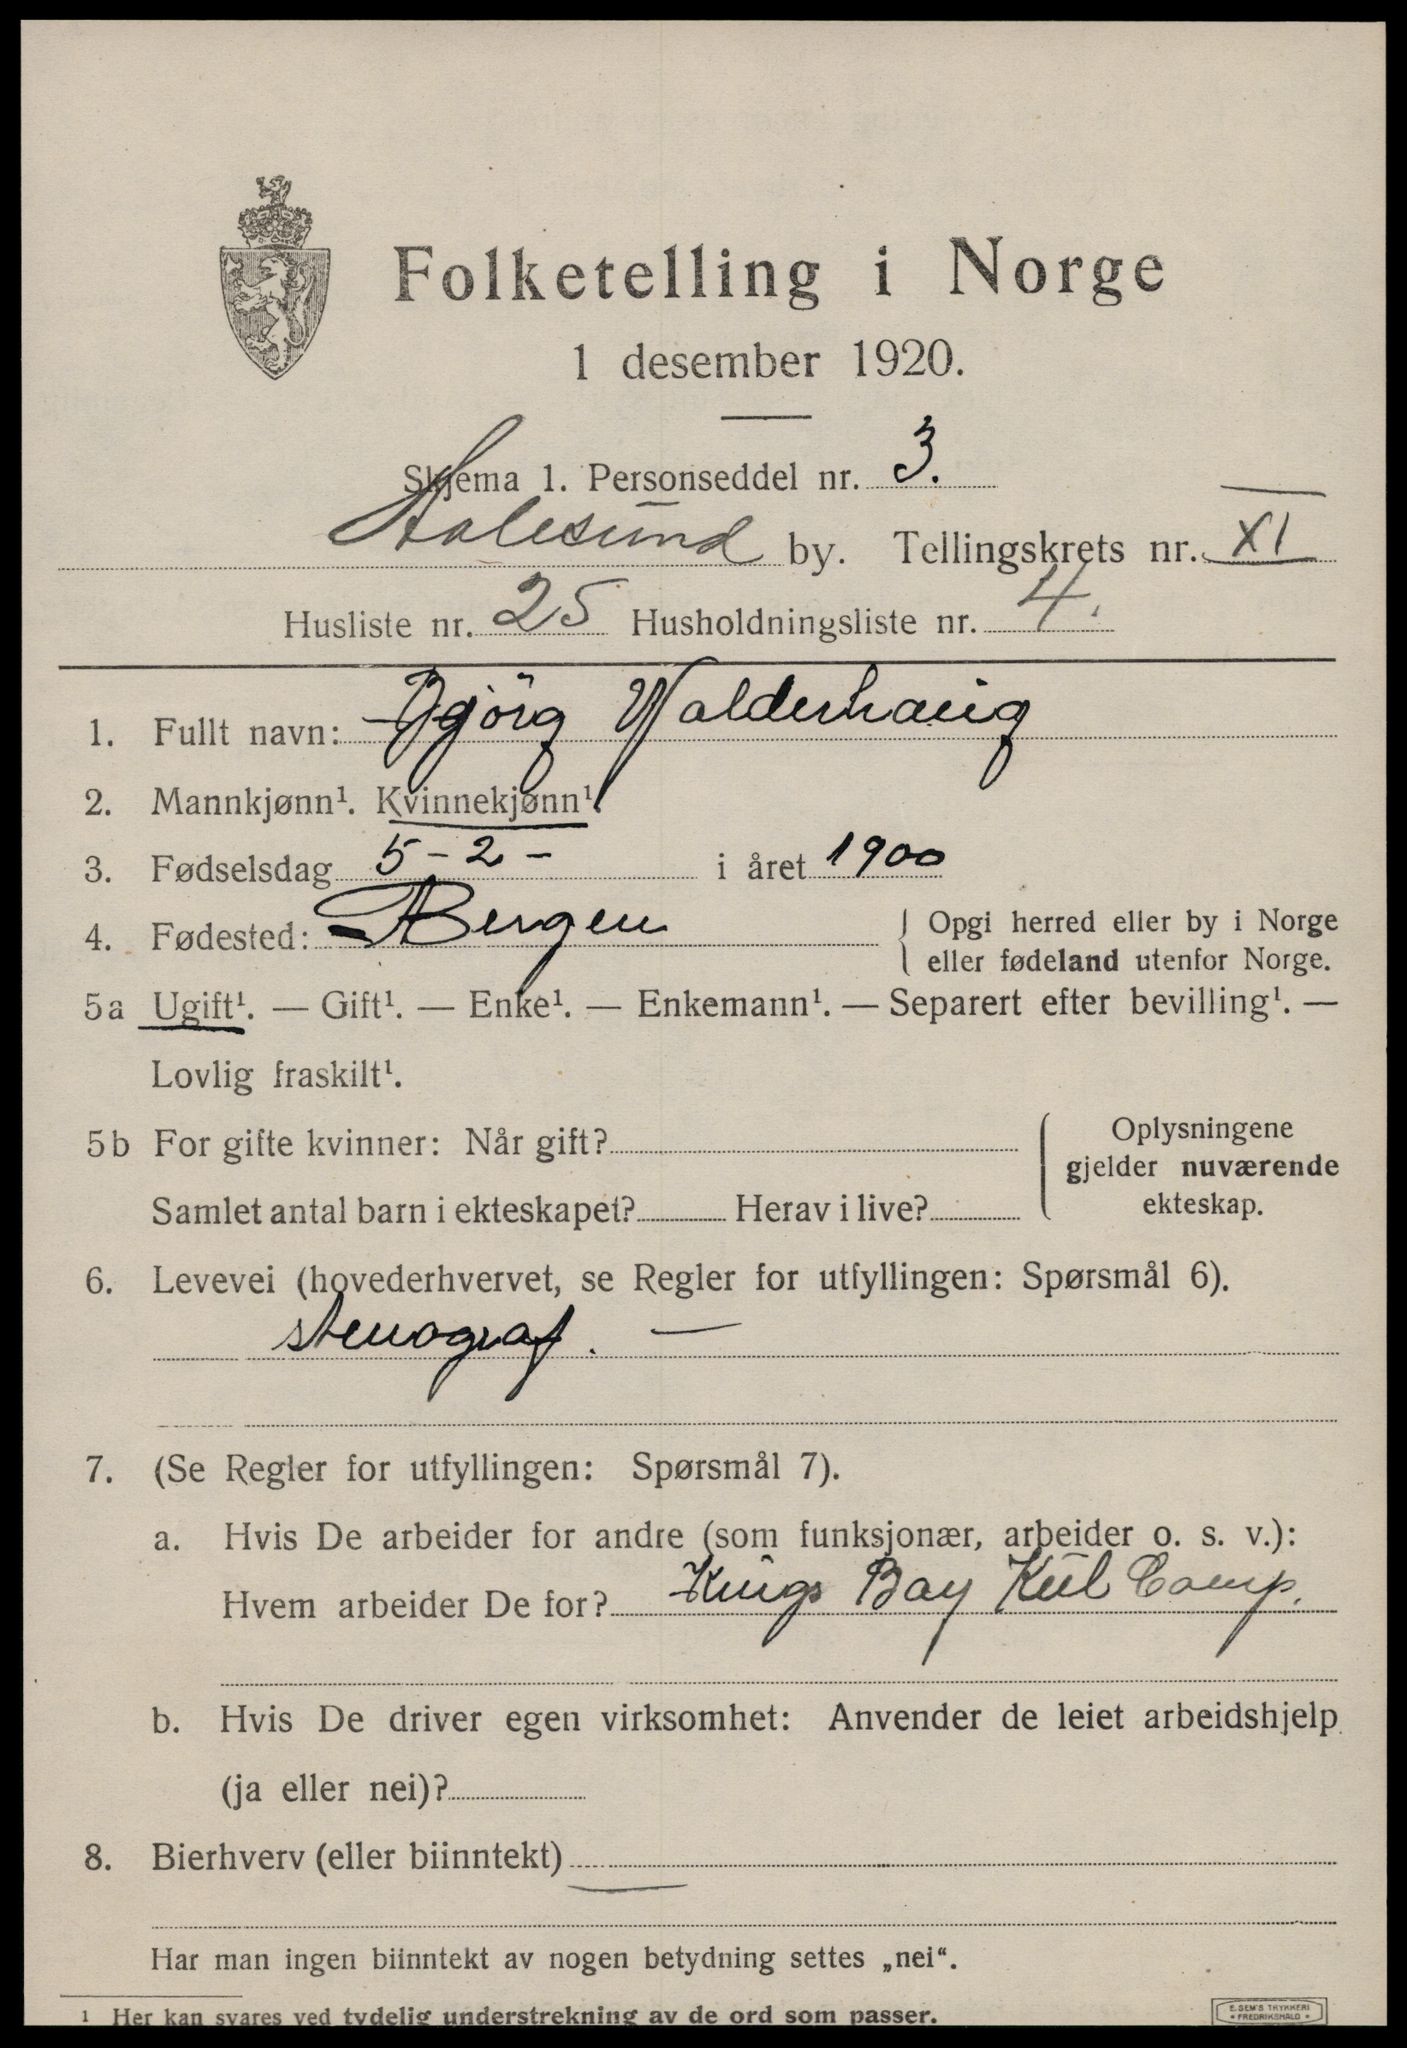 Folketelling i Norge
1 desember 1920.
Skjema 1. Personseddel nr. 3.
Aalesund by. Tellingskrets nr. XI
Husliste nr. 25 Husholdningsliste nr. 4.
1. Fullt navn: Bjørg Walderhaug
2. Mannkjønn¹. Kvinnekjønn¹.
3. Fødselsdag 5-2- i året 1900
4. Fødested: Bergen { Opgi herred eller by i Norge
eller fødeland utenfor Norge.
5a Ugift¹. — Gift¹. — Enke¹. — Enkemann¹. — Separert efter bevilling¹. —
Lovlig fraskilt¹.
5b For gifte kvinner: Når gift?
Samlet antal barn i ekteskapet? Herav i live?
{ Oplysningene
gjelder nuværende
ekteskap.
6. Levevei (hovederhvervet, se Regler for utfyllingen: Spørsmål 6).
stenograf. —
7. (Se Regler for utfyllingen: Spørsmål 7).
a. Hvis De arbeider for andre (som funksjonær, arbeider o. s. v.):
Hvem arbeider De for? Kings Bay Kul Comp.
b. Hvis De driver egen virksomhet: Anvender de leiet arbeidshjelp
(ja eller nei)?
8. Bierhverv (eller biinntekt) —
Har man ingen biinntekt av nogen betydning settes „nei“.
¹ Her kan svares ved tydelig understrekning av de ord som passer.
E. SEM'S TRYKKERI
* FREDRIKSHALD *